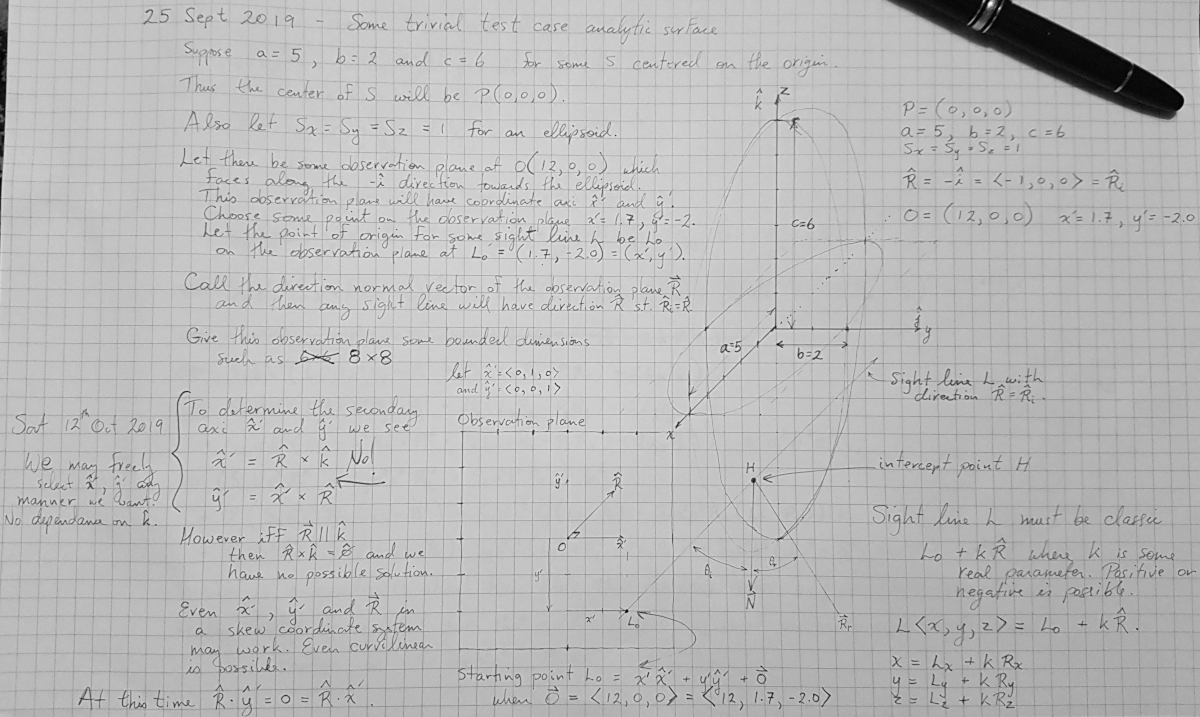 25 Sept 2019 - Some trivial test case analytic surface
Suppose a=5, b=2 and c=6 for some S centered on the origin.
Thus the center of S will be P(0,0,0).
Also let Sx = Sy = Sz = 1 for an ellipsoid.
Let there be some observation plane at O(12,0,0) which
faces along the -î direction towards the ellipsoid.
This observation plane will have coordinate axi x̂' and ŷ'.
Choose some point on the observation plane x'=1.7, y'=-2.
Let the point of origin for some sight line L be Lo
on the observation plane at Lo = (1.7, -2.0) = (x', y').
Call the direction normal vector of the observation plane R⃗
and then any sight line will have direction R⃗ st. R̂i = R̂.
Give this observation plane some bounded dimensions
such as 8×8
let x̂' = <0,1,0>
and ŷ' = <0,0,1>
Sat 12th Oct 2019
We may freely
select x̂', ŷ' any
manner we want.
No dependance on k̂.
To determine the secondary
axi x̂' and ŷ' we see
x̂' = R̂ × k̂ No!
ŷ' = x̂' × R̂
However iff R⃗ || k̂
then R̂ × k̂ = 0⃗ and we
have no possible solution.
Even x̂', ŷ' and R⃗ in
a skew coordinate system
may work. Even curvilinear
is possible.
At this time R̂·ŷ' = 0 = R̂·x̂'.
k̂ z
c=6
a=5
b=2
ĵ y
x
P = (0,0,0)
a=5, b=2, c=6
Sx = Sy = Sz = 1
R̂ = -î = <-1,0,0> = R̂i
O = (12,0,0) x'=1.7, y'=-2.0
Sight line L with
direction R̂ = R̂i.
Observation plane
ŷ'
R̂
O
x̂'
y'
x'
Lo
H
intercept point H
θi
θr
N⃗
R⃗r
Sight line L must be classic
Lo + kR̂ where k is some
real parameter. Positive or
negative is possible.
L<x,y,z> = Lo + kR̂.
x = Lx + k Rx
y = Ly + k Ry
z = Lz + k Rz
Starting point Lo = x'x̂' + y'ŷ' + O⃗
when O⃗ = <12,0,0> = <12, 1.7, -2.0>